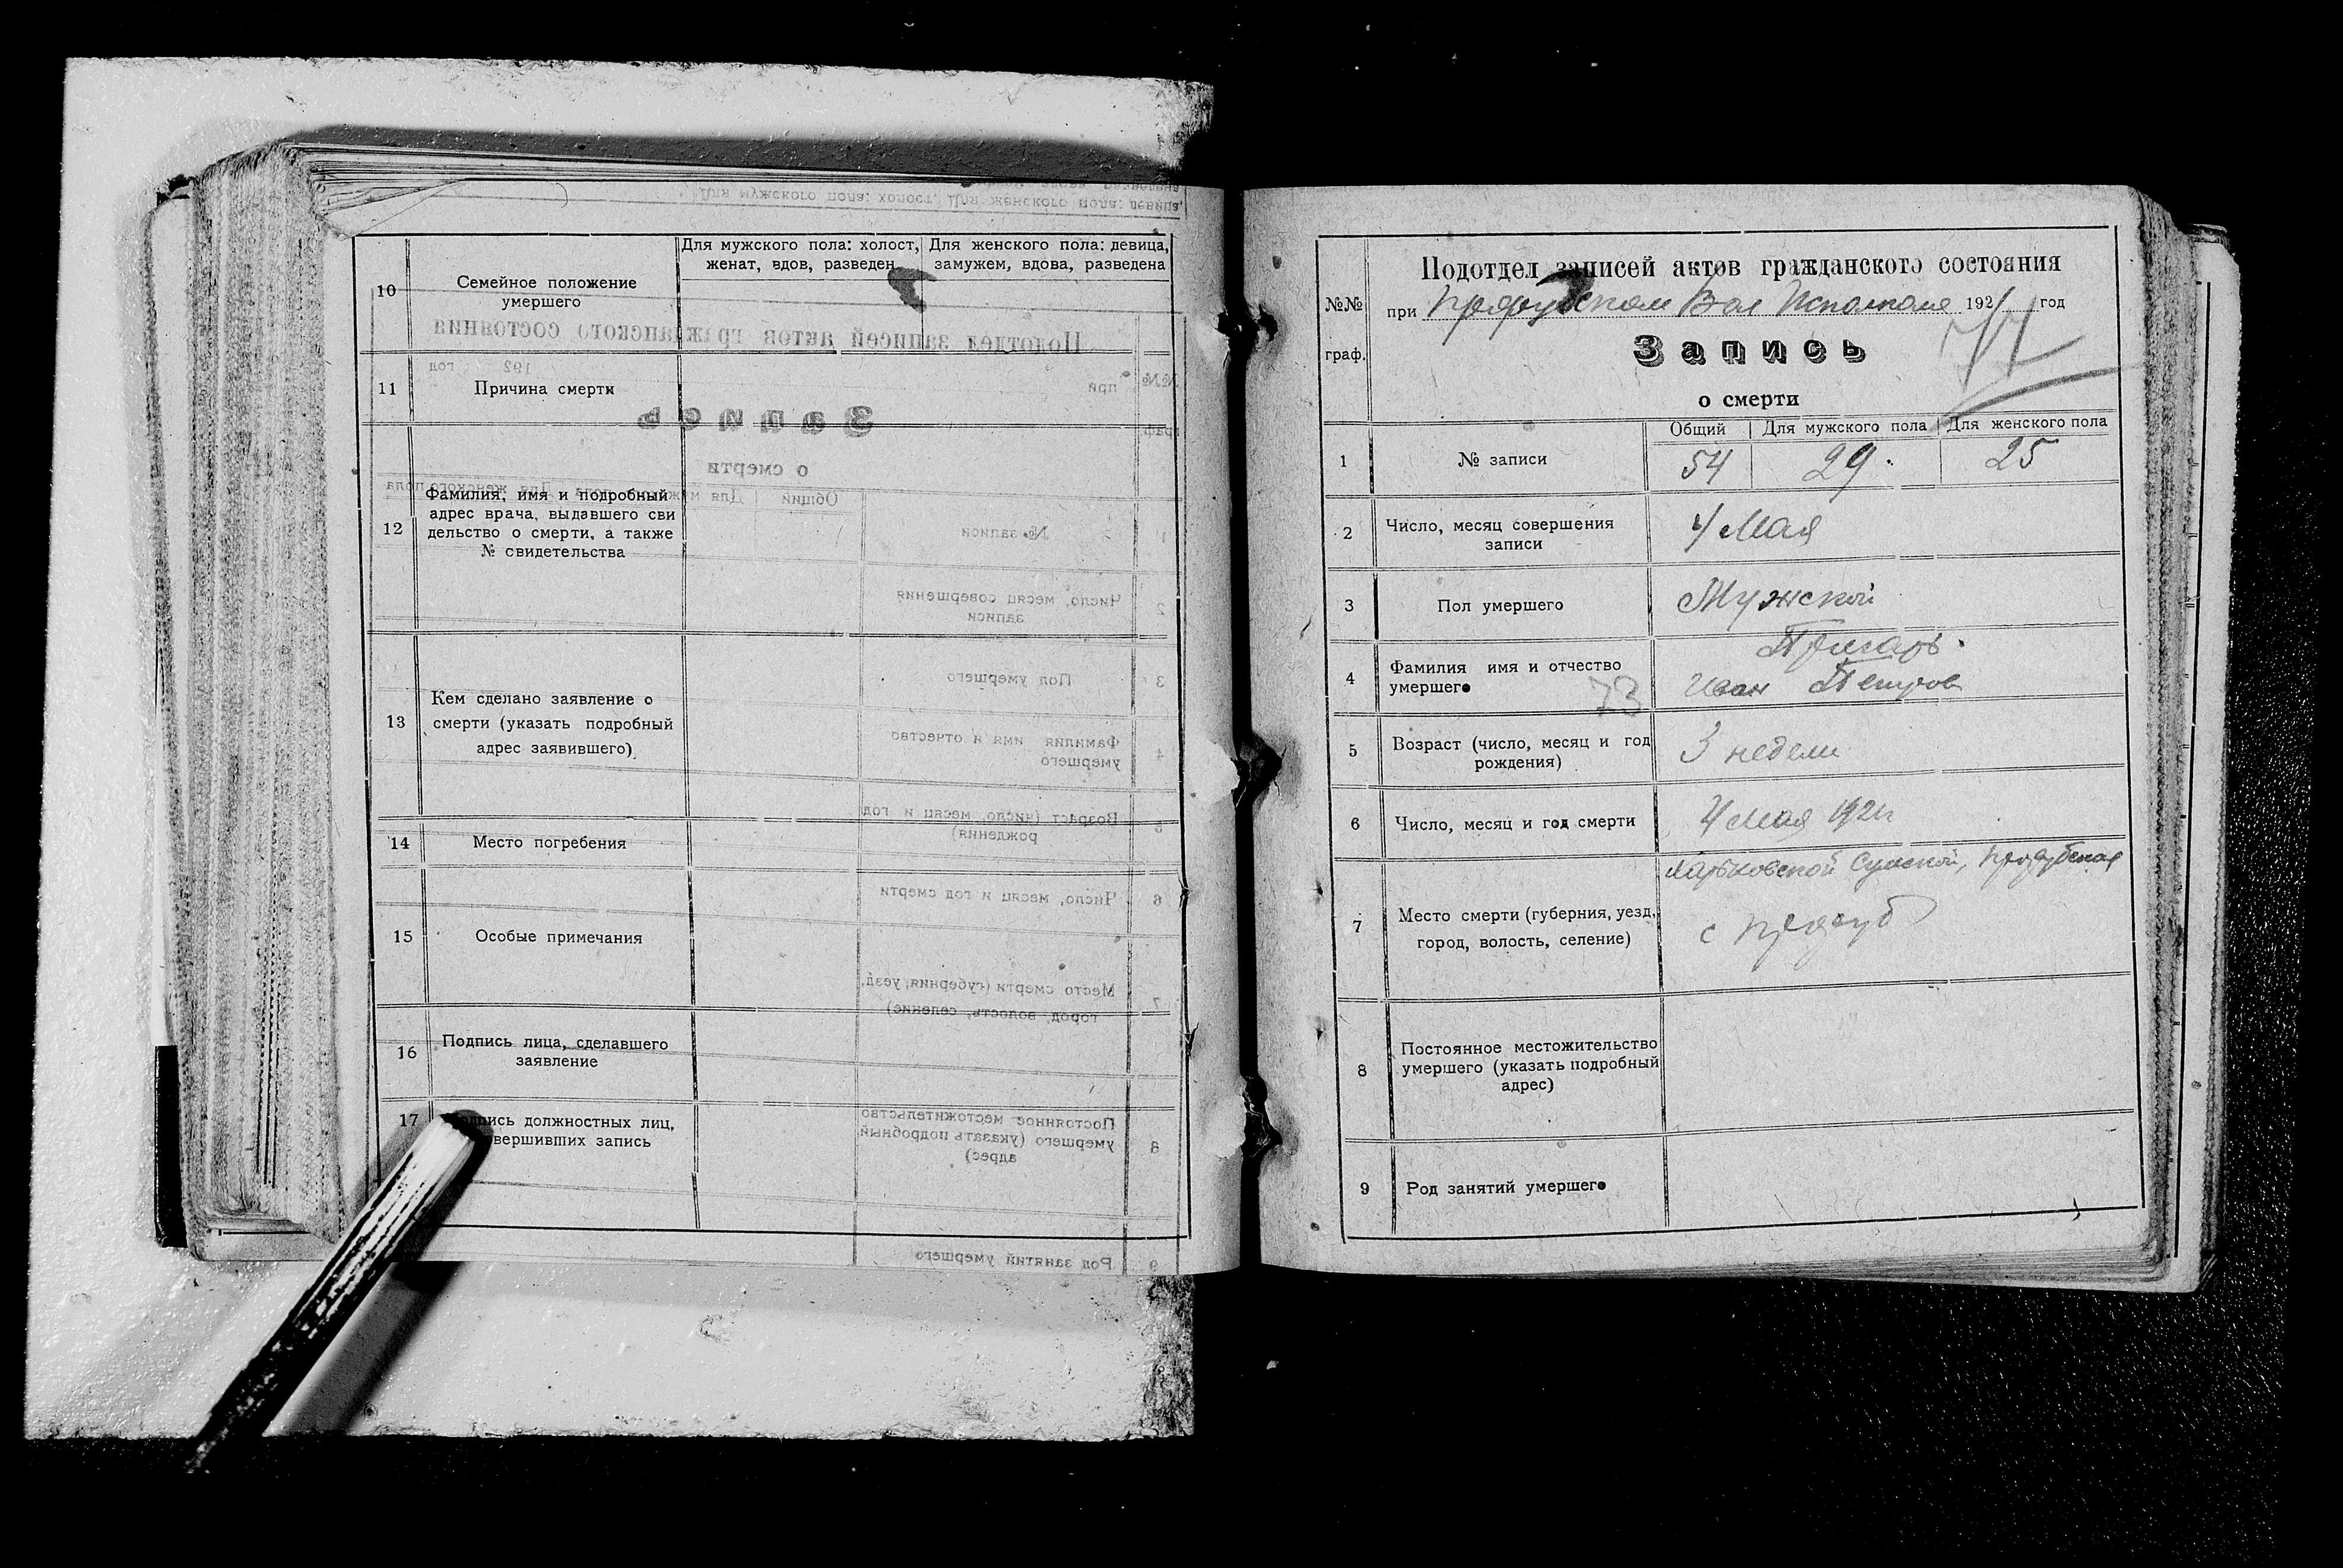 Для мужского пола: холост, женат, вдов, разведен
Для женского пола: девица, замужем, вдова, разведена
10
Семейное положение
умершего
11
Причина смерти
12
Фамилия, имя и подробный
адрес врача, выдавшего сви
дельство о смерти, а также
№ свидетельства
13
Кем сделано заявление о
смерти (указать подробный
адрес заявившего)
14
Место погребения
15
Особые примечания
16
Подпись лица, сделавшего
заявление
17
должностных лиц,
запись
Подотдел записей актов гражданского состояния
№№
граф.
при Вол Исполкоме 1921 год
77
Запись
о смерти
Общий Для мужского пола Для женского пола
1 № записи 54 29 25
2 Число, месяц совершения
записи
4 Мая
3 Пол умершего Мужской
4 Фамилия имя и отчество
умершего
73
Иван Петров
5 Возраст (число, месяц и год
рождения)
3 недели
6 Число, месяц и год смерти 4 Мая 1921
7 Место смерти (губерния, уезд,
город, волость, селение)
Харьковской Сумской,
с
8 Постоянное местожительство
умершего (указать подробный
адрес)
9 Род занятий умершего